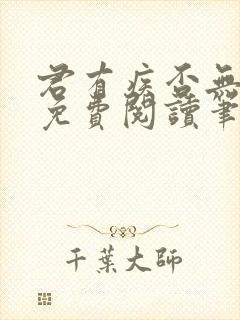 君有疾否無
免費閱讀筆
千葉大師